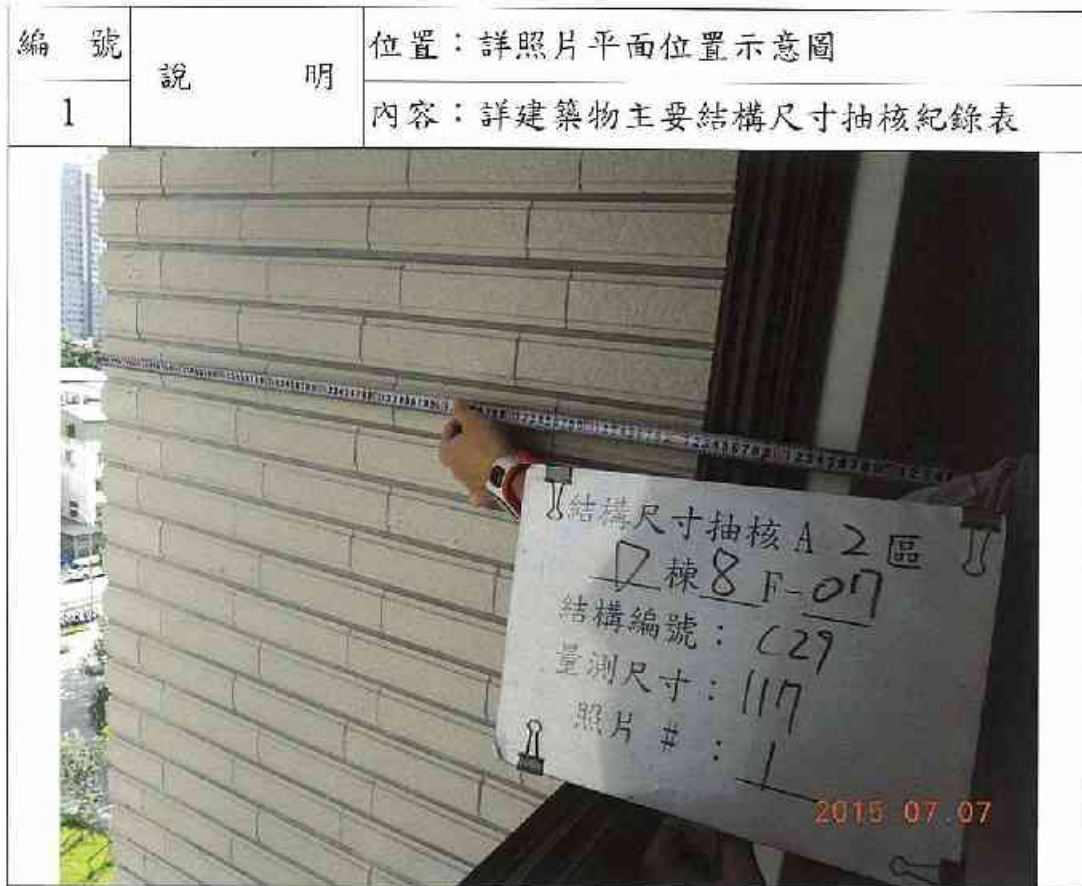 編 號
說 明
位置：詳照片平面位置示意圖
1
內容：詳建築物主要結構尺寸抽核紀錄表
結構尺寸抽核 A 2 區
D 棟 8 F-07
結構編號： C29
量測尺寸： 117
照片 #： 1
2015 07.07